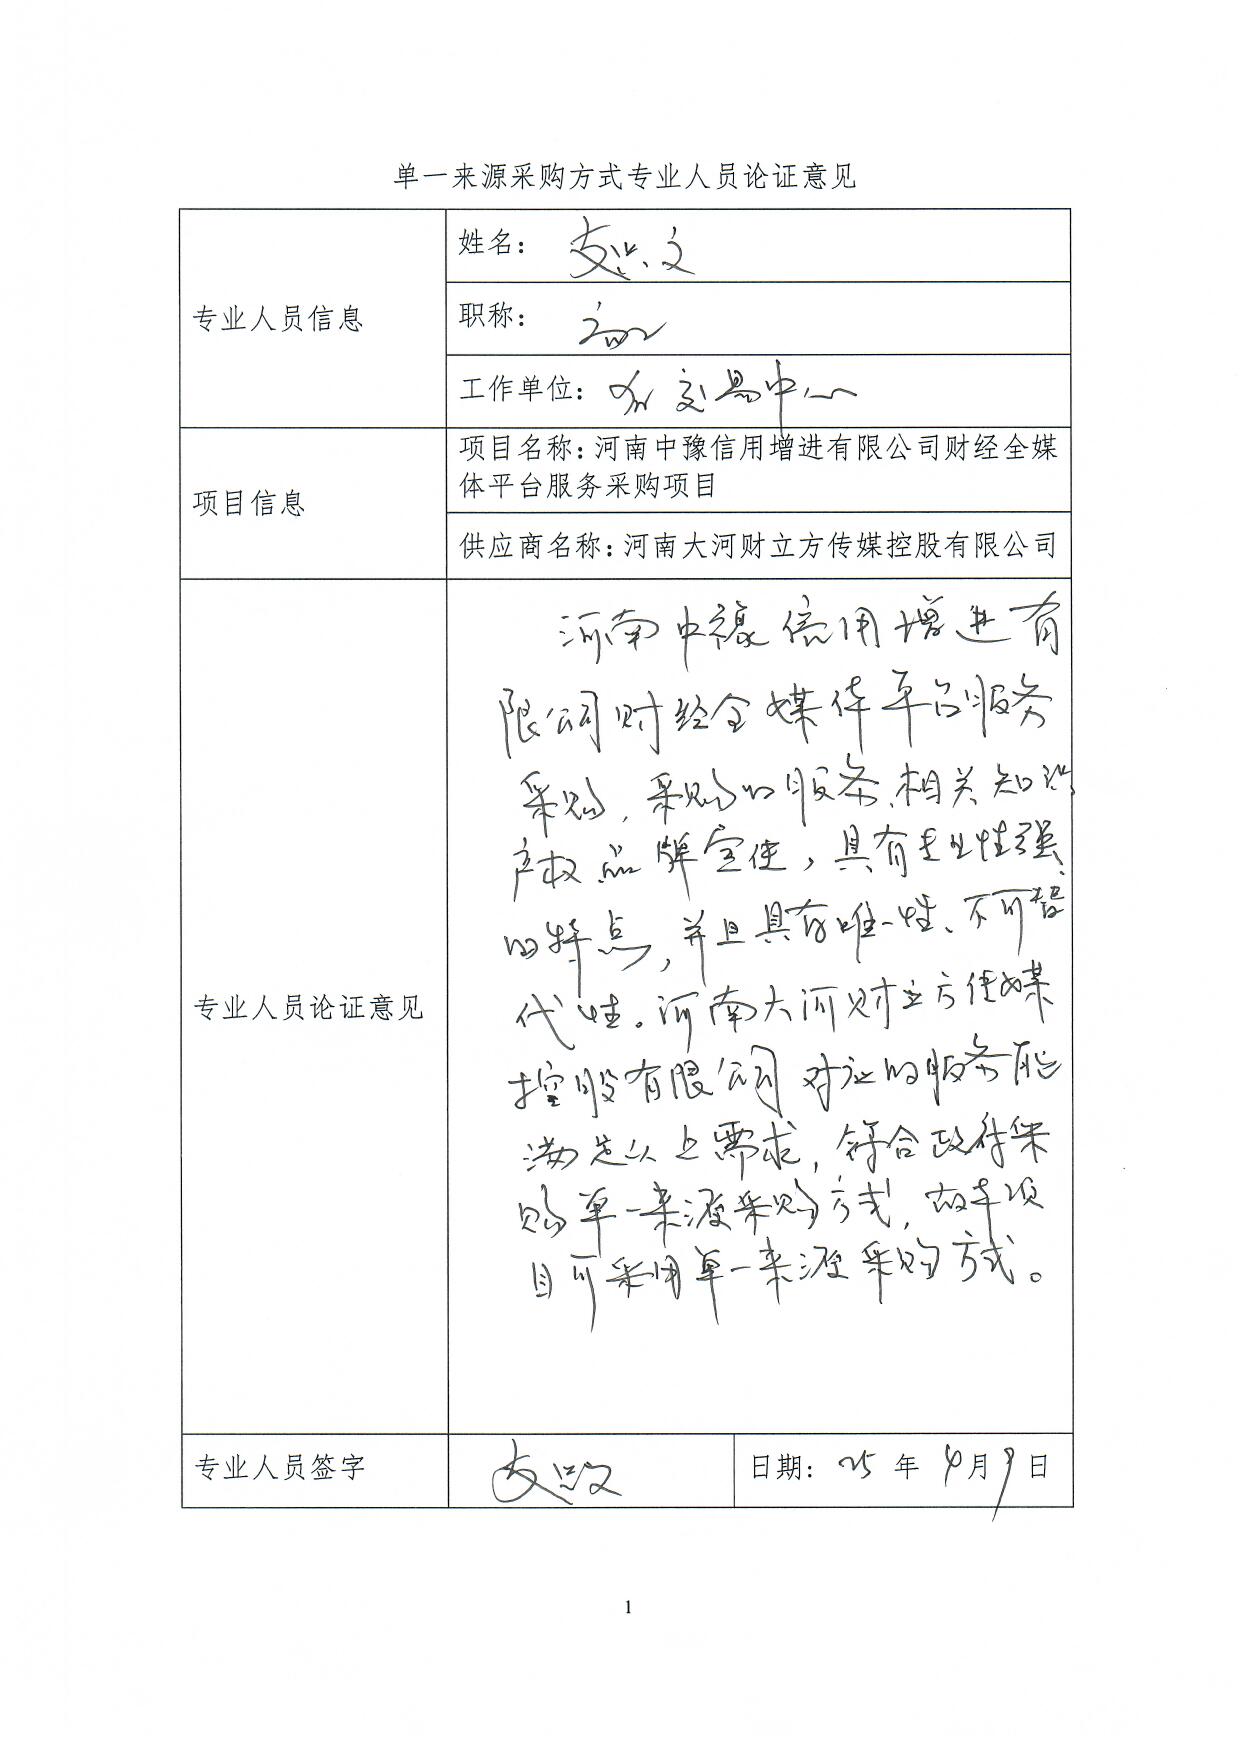 单一来源采购方式专业人员论证意见
专业人员信息
姓名：支兴文
职称：
工作单位：交易中心
项目信息
项目名称：河南中豫信用增进有限公司财经全媒
体平台服务采购项目
供应商名称：河南大河财立方传媒控股有限公司
专业人员论证意见
河南中豫信用增进有
限公司财经全媒体平台服务
采购，采购的服务、相关知识
产权品牌宣传，具有专业性强
的特点，并且具有唯一性、不可替
代性。河南大河财立方传媒
控股有限公司对应的服务能
满足以上需求，符合政府采
购单一来源采购方式，故本项
目可采用单一来源采购方式。
专业人员签字
支兴文
日期：25年4月9日
1